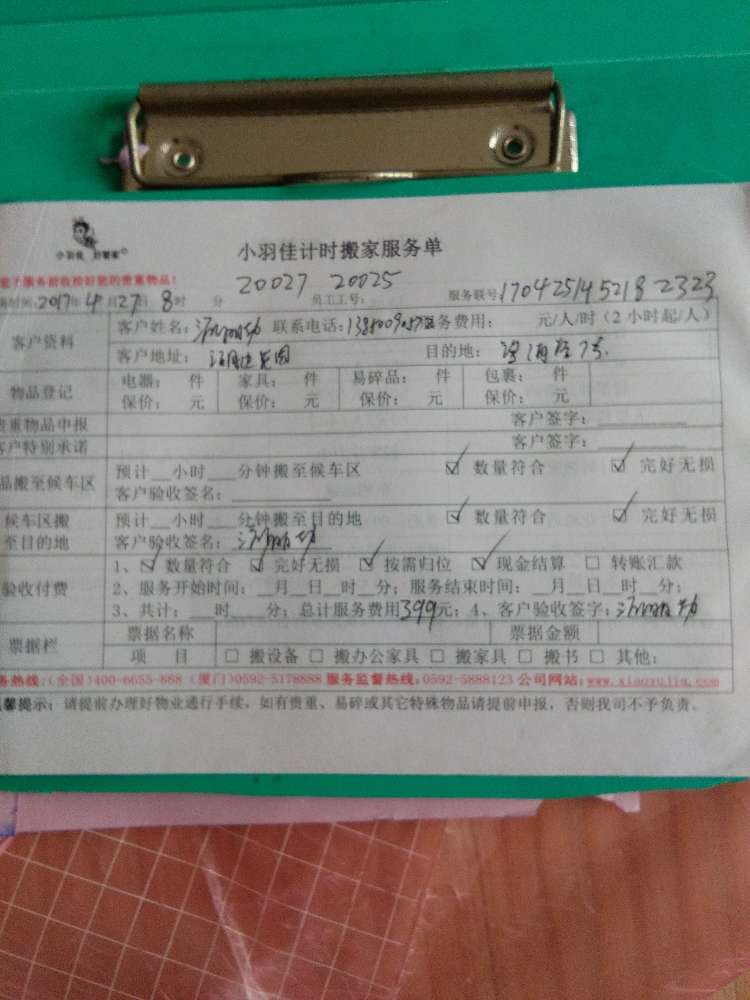 小羽佳 好管家
小羽佳计时搬家服务单
服务前收检好您的贵重物品!
20027 20025
时间:2017年4月27日8时 分 员工工号: 服务联号:1704251452182323
客户资料
客户姓名: 联系电话: 务费用: 元/人/时(2小时起/人)
客户地址: 目的地:
物品登记
电器: 件 家具: 件 易碎品: 件 包裹: 件
保价: 元 保价: 元 保价: 元 保价: 元
贵重物品申报 客户签字:
客户特别承诺 客户签字:
品搬至候车区
预计__小时__分钟搬至候车区 ☑ 数量符合 ☑ 完好无损
客户验收签名:
候车区搬至目的地
预计__小时__分钟搬至目的地 ☑ 数量符合 ☑ 完好无损
客户验收签名:
验收付费
1、☑ 数量符合 ☑ 完好无损 ☑ 按需归位 ☑ 现金结算 □ 转账汇款
2、服务开始时间:__月__日__时__分;服务结束时间:__月__日__时__分;
3、共计:__时__分;总计服务费用399元;4、客户验收签字:
票据栏
票据名称 票据金额
项 目 □ 搬设备 □ 搬办公家具 □ 搬家具 □ 搬书 □ 其他:
务热线:(全国)400-6655-888 (厦门)0592-5178888 服务监督热线:0592-5888123 公司网站:www.xiaoyujia.com
馨提示:请提前办理好物业通行手续,如有贵重、易碎或其它特殊物品请提前申报,否则我司不予负责。